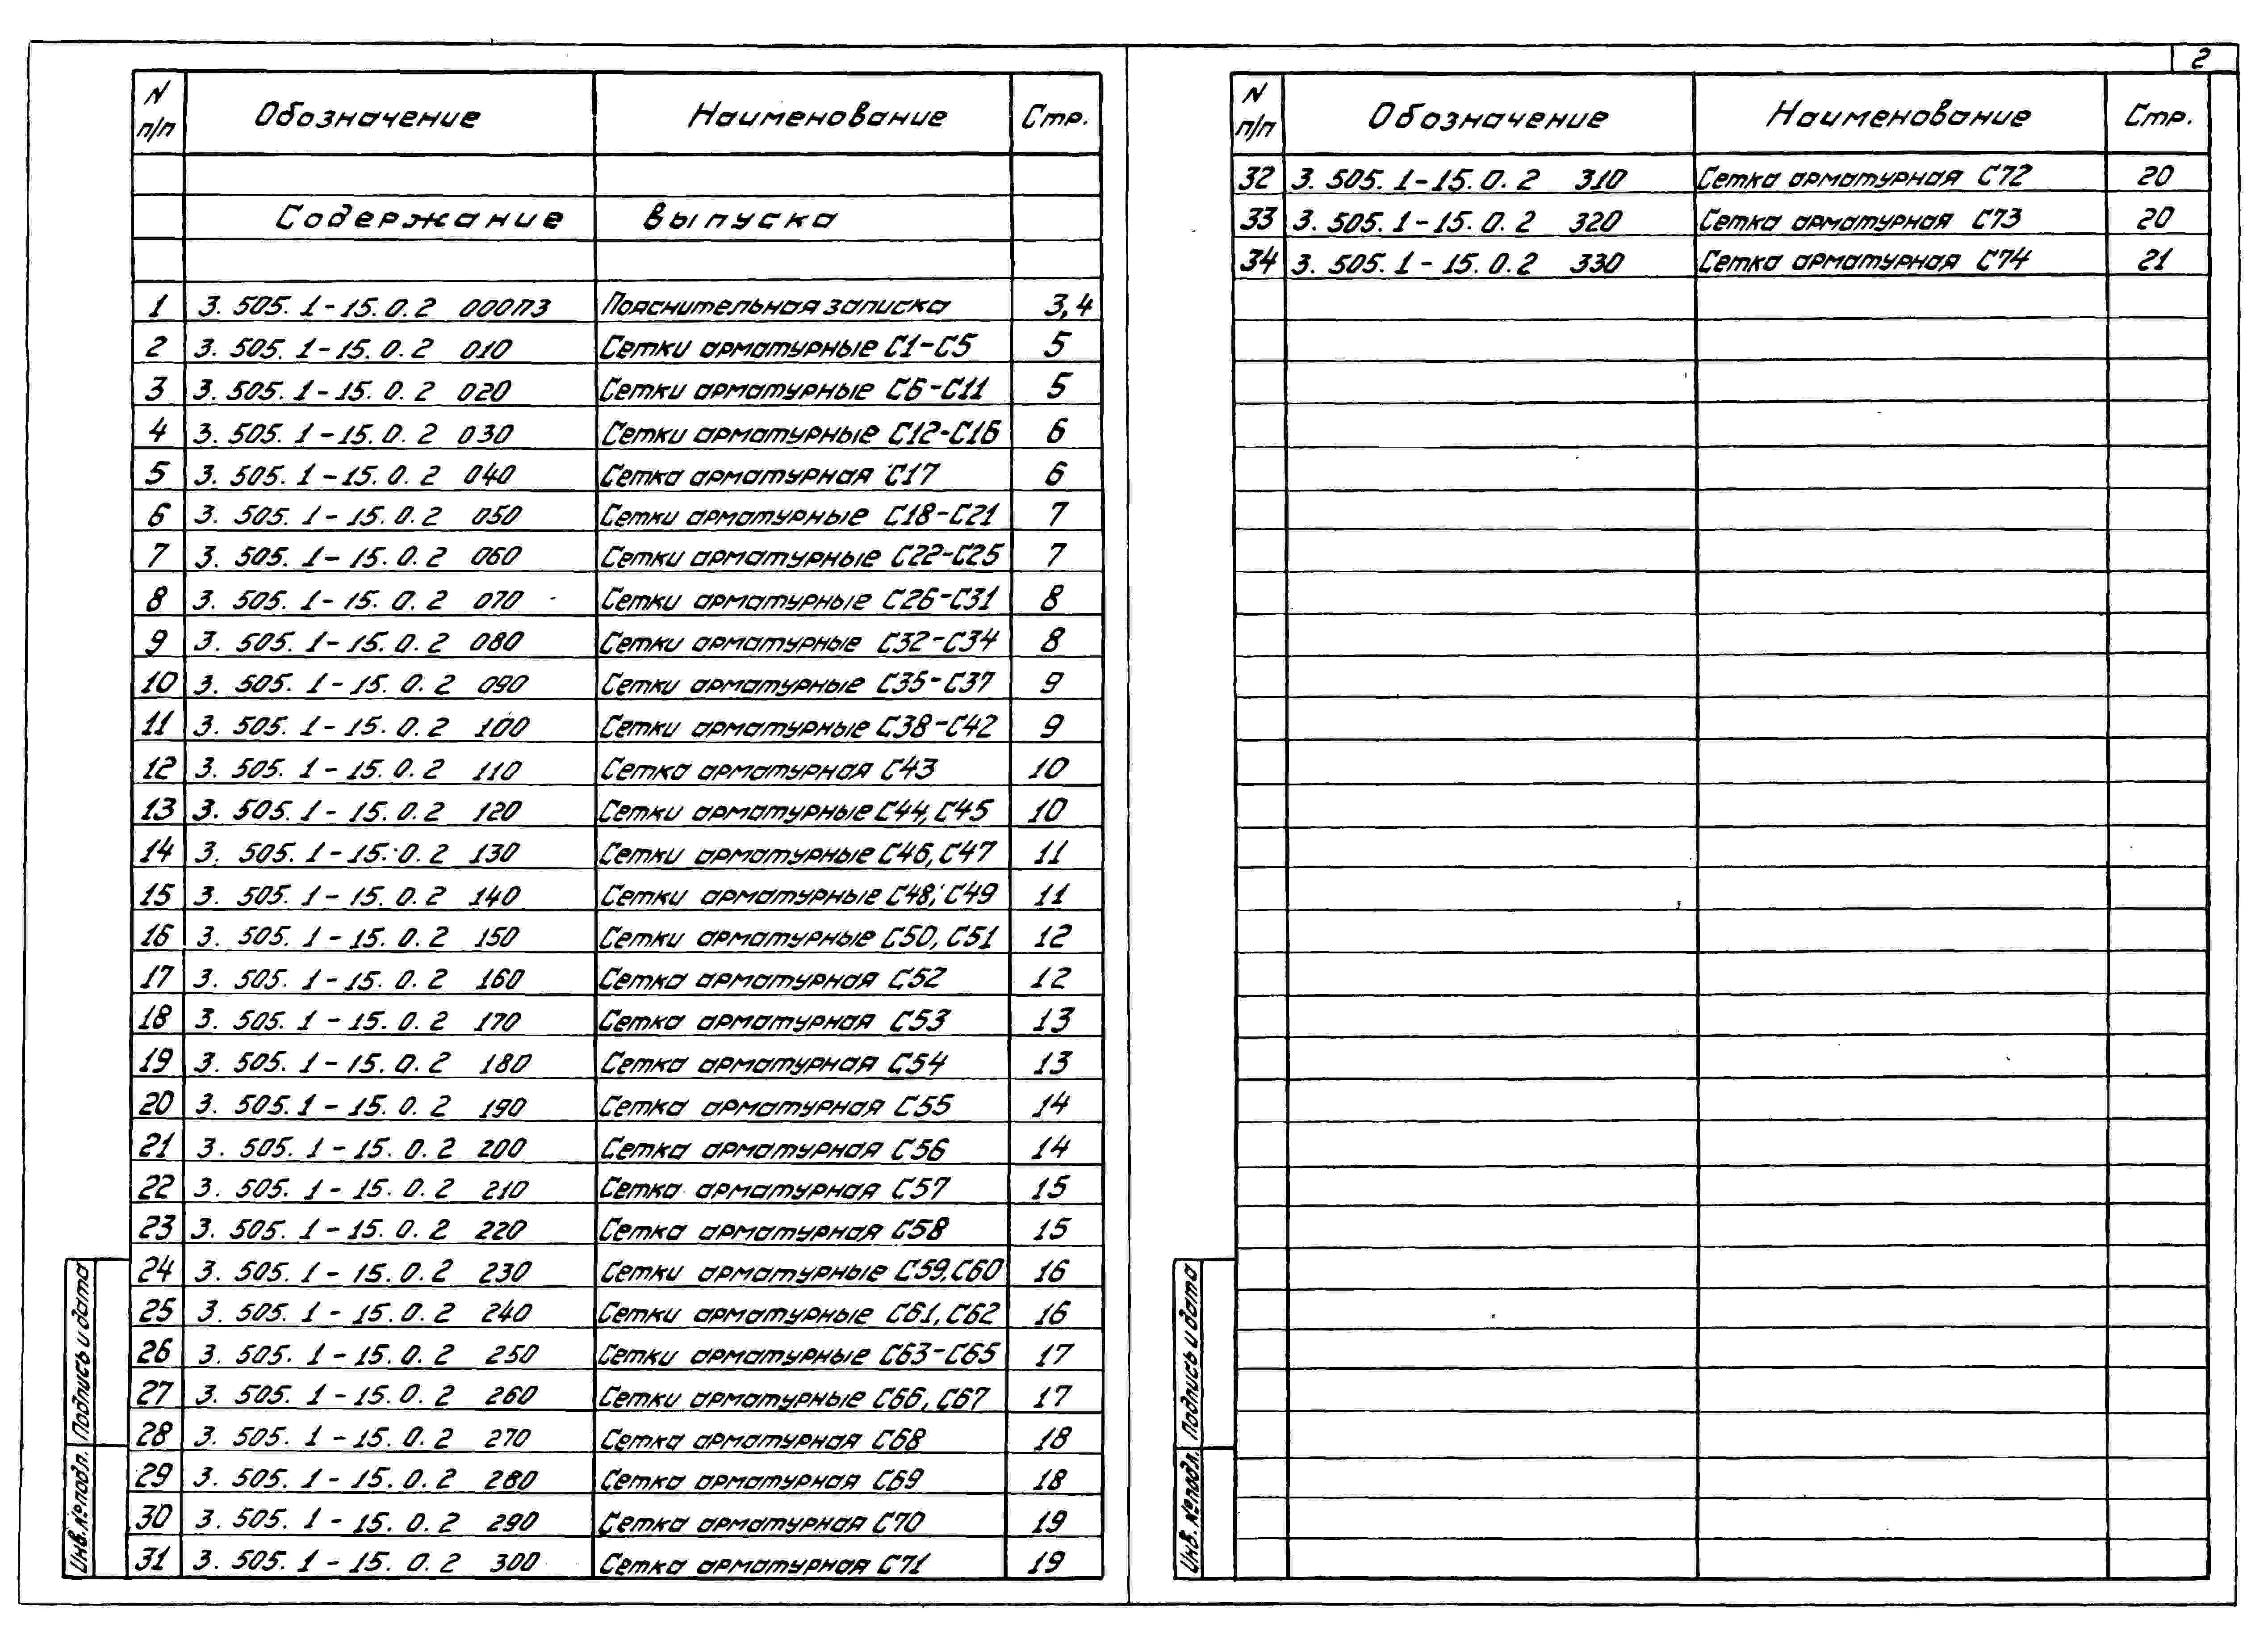 2
N п/п Обозначение Наименование Стр.
Содержание выпуска
1 3.505.1-15.0.2 000ПЗ Пояснительная записка 3,4
2 3.505.1-15.0.2 010 Сетки арматурные С1-С5 5
3 3.505.1-15.0.2 020 Сетки арматурные С6-С11 5
4 3.505.1-15.0.2 030 Сетки арматурные С12-С16 6
5 3.505.1-15.0.2 040 Сетка арматурная С17 6
6 3.505.1-15.0.2 050 Сетки арматурные С18-С21 7
7 3.505.1-15.0.2 060 Сетки арматурные С22-С25 7
8 3.505.1-15.0.2 070 Сетки арматурные С26-С31 8
9 3.505.1-15.0.2 080 Сетки арматурные С32-С34 8
10 3.505.1-15.0.2 090 Сетки арматурные С35-С37 9
11 3.505.1-15.0.2 100 Сетки арматурные С38-С42 9
12 3.505.1-15.0.2 110 Сетка арматурная С43 10
13 3.505.1-15.0.2 120 Сетки арматурные С44, С45 10
14 3.505.1-15.0.2 130 Сетки арматурные С46, С47 11
15 3.505.1-15.0.2 140 Сетки арматурные С48, С49 11
16 3.505.1-15.0.2 150 Сетки арматурные С50, С51 12
17 3.505.1-15.0.2 160 Сетка арматурная С52 12
18 3.505.1-15.0.2 170 Сетка арматурная С53 13
19 3.505.1-15.0.2 180 Сетка арматурная С54 13
20 3.505.1-15.0.2 190 Сетка арматурная С55 14
21 3.505.1-15.0.2 200 Сетка арматурная С56 14
22 3.505.1-15.0.2 210 Сетка арматурная С57 15
23 3.505.1-15.0.2 220 Сетка арматурная С58 15
24 3.505.1-15.0.2 230 Сетки арматурные С59, С60 16
25 3.505.1-15.0.2 240 Сетки арматурные С61, С62 16
26 3.505.1-15.0.2 250 Сетки арматурные С63-С65 17
27 3.505.1-15.0.2 260 Сетки арматурные С66, С67 17
28 3.505.1-15.0.2 270 Сетка арматурная С68 18
29 3.505.1-15.0.2 280 Сетка арматурная С69 18
30 3.505.1-15.0.2 290 Сетка арматурная С70 19
31 3.505.1-15.0.2 300 Сетка арматурная С71 19
Инв. № подл. Подпись и дата
N п/п Обозначение Наименование Стр.
32 3.505.1-15.0.2 310 Сетка арматурная С72 20
33 3.505.1-15.0.2 320 Сетка арматурная С73 20
34 3.505.1-15.0.2 330 Сетка арматурная С74 21
Инв. № подл. Подпись и дата